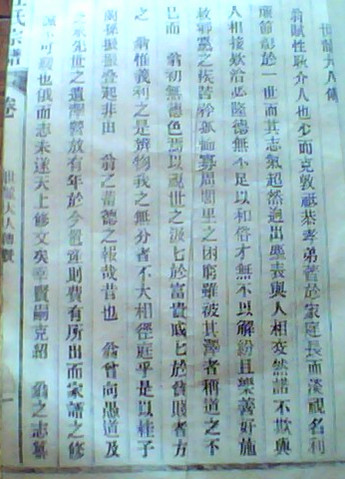 世馥大人傳
翁賦性耿介人也少而克敦祗恭孝弟著於家庭長而淡視名利
操節彰於一世而其志氣超然逈出塵表與人相交然諾不欺與
人相接欵洽必隆德無不足以和俗才無不以解紛且樂善好施
敦鄉黨之族苦矜孤恤寡周閭里之困窮雖被其澤者稱道之不
已而 翁初無德色焉以視世之汲匕於富貴戚匕於貧賤者方
之 翁惟義利之是辨物我之無分者不大相徑庭乎是以桂子
蘭孫振振叠起非由 翁之蓄德之報哉昔也 翁曾向愚道及
之承先世之遺澤釀放有年於今置產則費有所出而家譜之修
誰不可義也俄而志未遂天上修文矣幸賢嗣克紹 翁之志纂
氏宗譜
卷
世馥大人傳贊
一